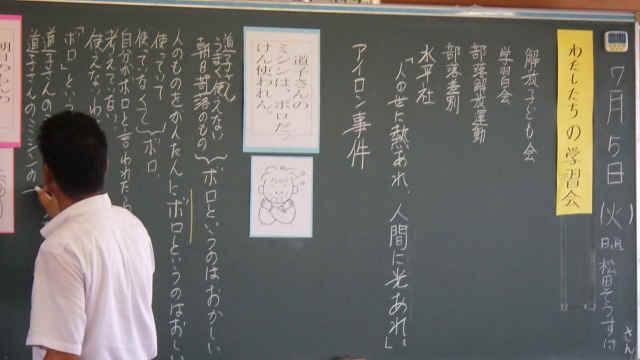 7月5日(火)
わたしたちの学習会
解放子ども会
学習会
部落解放運動
部落差別
水平社
「人の世に熱あれ、人間に光あれ。」
アイロン事件
道子さんの
ミシンは、ボロだっ
けん使われん。
うまく使えない
朝日部落のもの
ボロというのはおかしい
人のものをかんたんに、ボロというのはおしい
使っていて
使っていなくて
ボロ、
自分がボロと言われたら
考えていない
使えない、わ
「ボロ」という
道子さんの
道子さんのミシンの